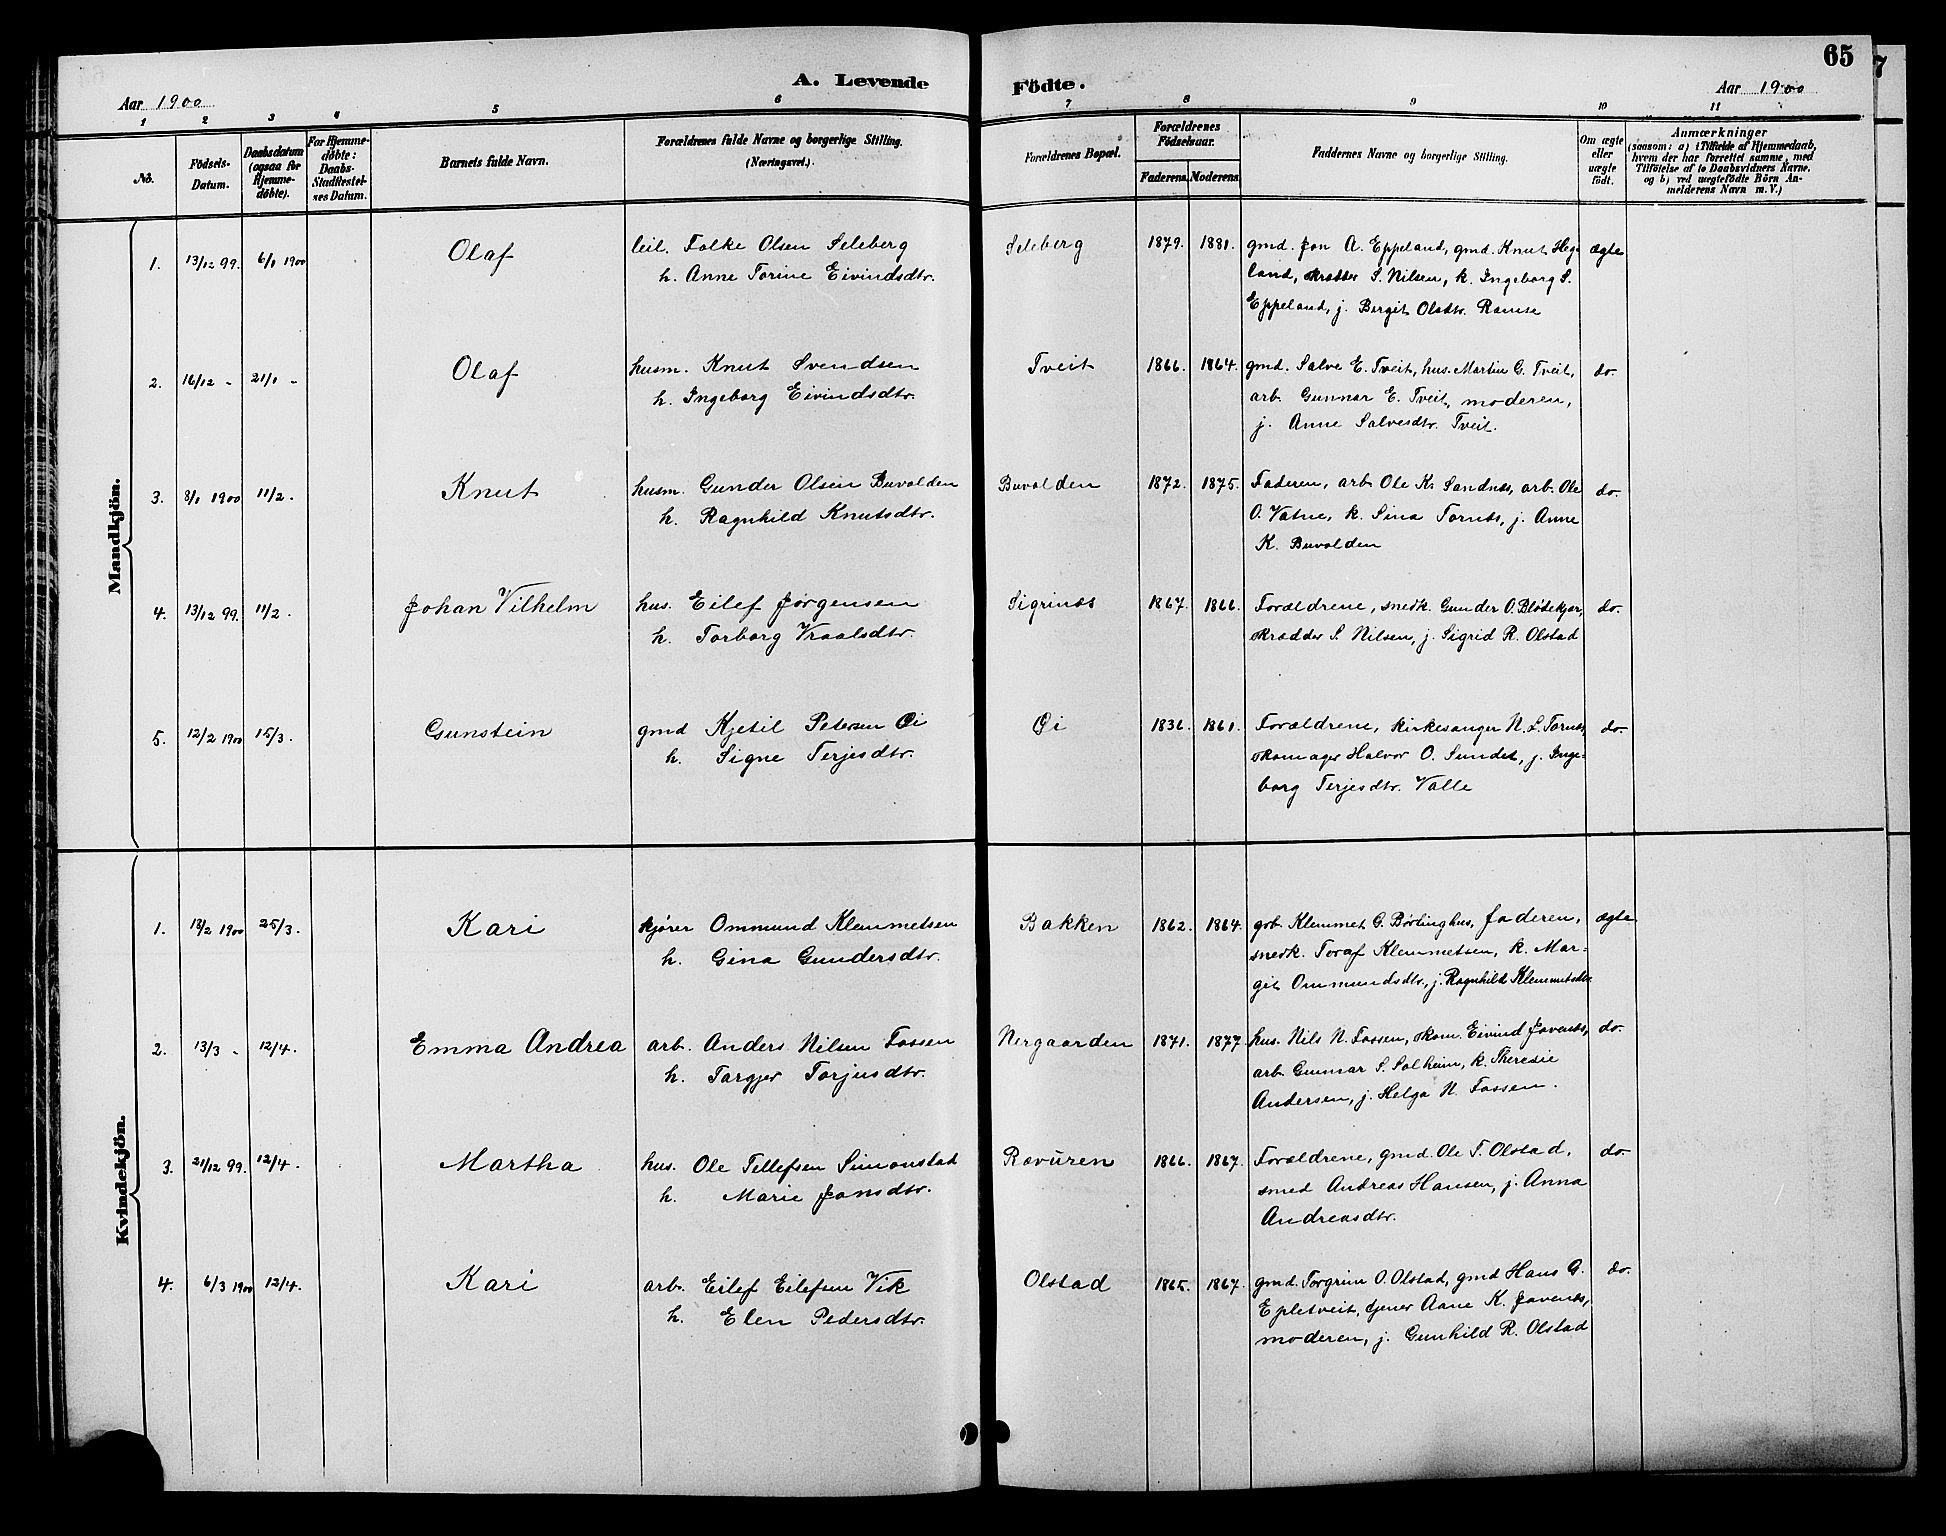 65
7
A. Levende Födte.
Aar 1900
Aar 1900
1 2 3 4 5 6 7 8 9 10 11
No.
Födsels-Datum.
Daabsdatum (ogsaa for Hjemme-döbte).
For Hjemme-döbte: Daabs-Stadfæstel-ses Datum.
Barnets fulde Navn.
Forældrenes fulde Navne og borgerlige Stilling.
(Næringsvei.)
Forældrenes Bopæl.
Forældrenes Födselsaar.
Faderens. Moderens.
Faddernes Navne og borgerlige Stilling.
Om ægte eller uægte født.
Anmærkninger
(saasom: a) i Tilfælde af Hjemmedaab,
hvem der har forrettet samme, med
Tilföielse af to Daabsvidners Navne.
og b) ved uægtefödte Börn An-
melderens Navn m. V.)
Mandkjön.
1. 13/12 99. 6/1 1900 Olaf leil. Folke Olsen Seleberg Seleberg 1879. 1881. gmd. Jon A. Eppeland, gmd. Knut Heg- ægte
h. Anne Torine Eivindsdtr. land, skrædder S. Nilsen, k. Ingeborg S.
Eppeland, j. Bergit Olsdtr. Ramse
2. 16/12 - 21/1 - Olaf husm. Knut Svendsen Tveit 1866. 1864. gmd. Salve E. Tveit, hus. Martin G. Tveit, do.
h. Ingeborg Eivindsdtr. arb. Gunnar E. Tveit, moderen,
j. Anne Salvesdtr. Tveit.
3. 8/1 1900 11/2. Knut husm. Gunder Olsen Buvolden Buvolden 1872. 1875. Faderen, arb. Ole K. Sandnes, arb. Ole do.
h. Ragnhild Knutsdtr. O. Vatne, k. Sina Tornes, j. Anne
K. Buvolden
4. 13/12 99. 11/2. Johan Vilhelm hus. Eilef Jørgensen Sigrinæs 1867. 1866. Forældrene, snedk. Gunder O. Blødekjær, do.
h. Torborg Vraalsdtr. skrædder S. Nilsen, j. Sigrid R. Olstad
5. 12/2 1900 15/3. Gunstein gmd Kjetil Petersen Øi Øi 1836. 1861. Forældrene, kirkesanger N. L. Tornes, do.
h. Signe Terjesdtr. skomager Halvor O. Sundet, j. Inge-
borg Terjesdtr. Valle
Kvindekjön.
1. 13/2 1900 25/3. Kari kjører Ommund Klemmetsen Bakken 1862. 1864. grb. Klemmet G. Børlinghus, faderen, ægte
h. Gina Gundersdtr. snedk. Toraf Klemmetsen, k. Mar-
git Ommundsdtr., j. Ragnhild Klemmetsdtr.
2. 13/3 - 12/4. Emma Andrea arb. Anders Nilsen Fossen Nergaarden 1871. 1877. hus. Nils N. Fossen, skom. Eivind Jovenes, do.
h. Torgjer Torjusdtr. arb. Gunnar S. Solheim, k. Theresie
Andersen, j. Helga N. Fossen.
3. 21/12 99. 12/4. Martha hus. Ole Tellefsen Simonstad Rævuren 1866. 1867. Forældrene, gmd. Ole T. Olstad, do.
h. Marie Jonsdtr. smed Andreas Hansen, j. Anna
Andreasdtr.
4. 6/3 1900 12/4. Kari arb. Eilef Eilefsen Vik Olstad 1865. 1867. gmd. Torgrim O. Olstad, gmd Hans G. do.
h. Elen Pedersdtr. Epletveit, tjener Aane K. Jovenes,
moderen, j. Gunhild R. Olstad